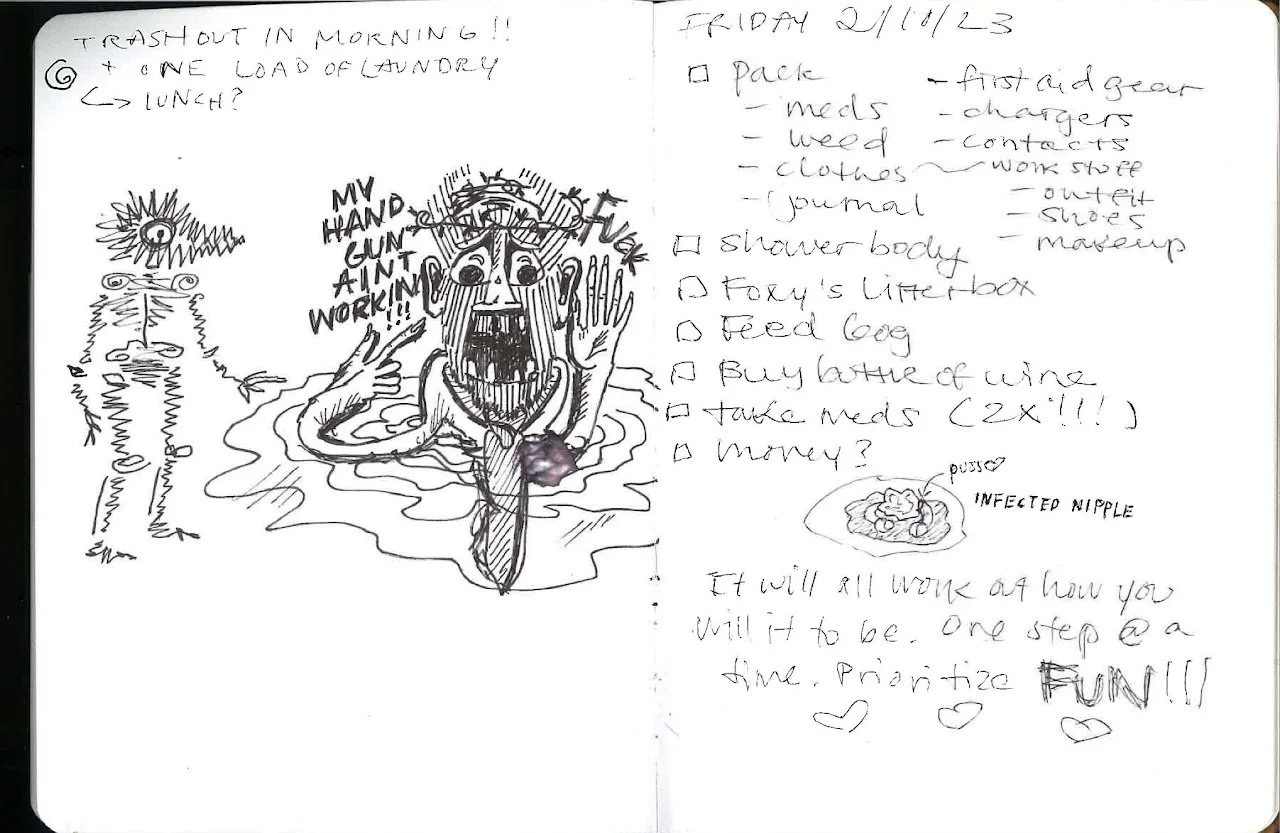 TRASH OUT IN MORNING!!
+ ONE LOAD OF LAUNDRY
↳ LUNCH?
MY
HAND
GUN
AINT
WORKIN
!!!
FUCK
FRIDAY 2/10/23
☐ pack
- meds
- weed
- clothes
- journal
- first aid gear
- chargers
- contacts
work stuff
- outfit
- shoes
- makeup
☐ shower body
☐ Foxy's litterbox
☐ Feed
☐ Buy bottle of wine
☐ take meds (2x!!!)
☐ money?
INFECTED NIPPLE
It will all work out how you
will it to be. One step @ a
time. Prioritize FUN!!!